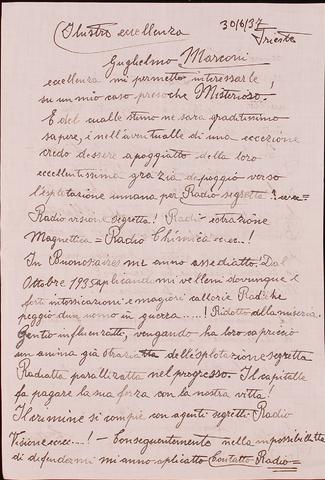 Ilustro eccellenza
30/6/37
Trieste
Guglielmo Marconi
eccellenza mi permetto interessarle
su un mio caso presoche Misterioso!
E del cualle stimo ne sara graditissimo
sapere, i nell'avventualle di una eccezione
credo dessere apoggiatto della loro
eccellentissima grazia depoggio verso
l'esplotazione umana per Radio segretta!
Radio visione segretta! Radi-
Magnettica = Radio Chimica ecc..!
In Buonosaires mi anno assediatto! Dal
Ottobre 1935 aplicandomi velleni dovunque e
forti intossicazioni e magiori callorie Radiche
peggio dun uomo in guerra.....! Ridotto alla miseria.
Gentio influenzatte, vengando ha loro capriccio
un anima già straziatta dell'esplotazione segretta
Radiatta parallizatta nel progresso. Il capitalle
fa pagare la sua forza con la nostra vitta!
Il crimine si compie con agenti segretti Radio
Visione ecc...! - Consequentemente nella impossibilitta
di defendermi mi anno aplicatto Contatto Radio=